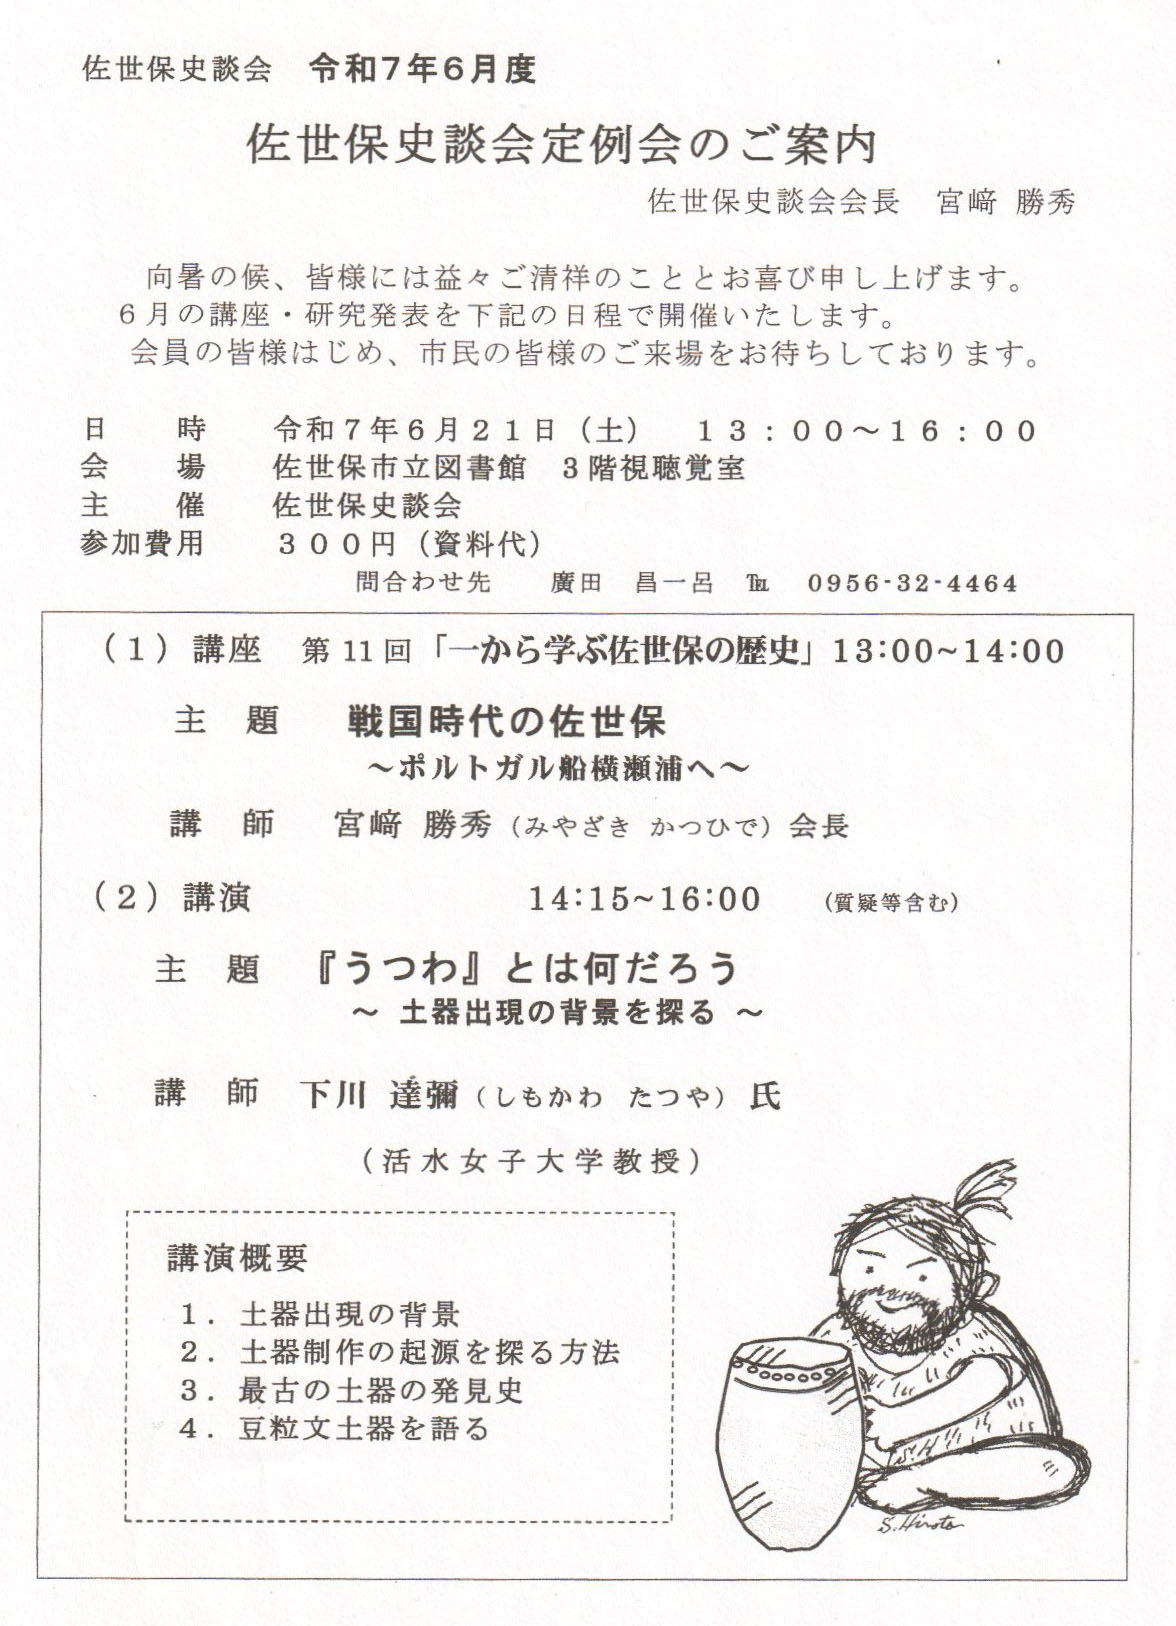 佐世保史談会　令和7年6月度
佐世保史談会定例会のご案内
佐世保史談会会長　宮﨑 勝秀
向暑の候、皆様には益々ご清祥のこととお喜び申し上げます。
６月の講座・研究発表を下記の日程で開催いたします。
会員の皆様はじめ、市民の皆様のご来場をお待ちしております。
日　　時　　令和７年６月２１日（土）　１３：００～１６：００
会　　場　　佐世保市立図書館　３階視聴覚室
主　　催　　佐世保史談会
参加費用　　３００円（資料代）
問合わせ先　　廣田　昌一呂　℡　0956-32-4464
（1）講座　第 11 回「一から学ぶ佐世保の歴史」13:00~14:00
主　題　　戦国時代の佐世保
～ポルトガル船横瀬浦へ～
講　師　　宮﨑 勝秀（みやざき かつひで）会長
（2）講演　　14:15~16:00　（質疑等含む）
主　題　『うつわ』とは何だろう
～ 土器出現の背景を探る ～
講　師　下川 達彌（しもかわ　たつや）氏
（活水女子大学教授）
講演概要
１．土器出現の背景
２．土器制作の起源を探る方法
３．最古の土器の発見史
４．豆粒文土器を語る
S.H
S.Hirota